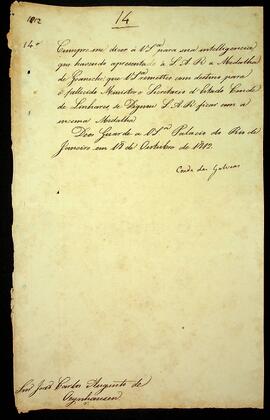 1812
14
14
Cumpre-me dizer a V.S.ª para sua intelligencia
que havendo apresentado a S.A.R. a Medalha
de que V.S.ª remetteo com destino para
o fallecido Ministro e Secretario d'Estado Conde
de Linhares, se Dignou S.A.R. ficar com a
mesma Medalha.
Deos Guarde a V.S.ª Palacio do Rio de
Janeiro em 18 de Outubro de 1812.
Conde das Galveas
Snr. João Carlos Augusto de
Oeynhausen